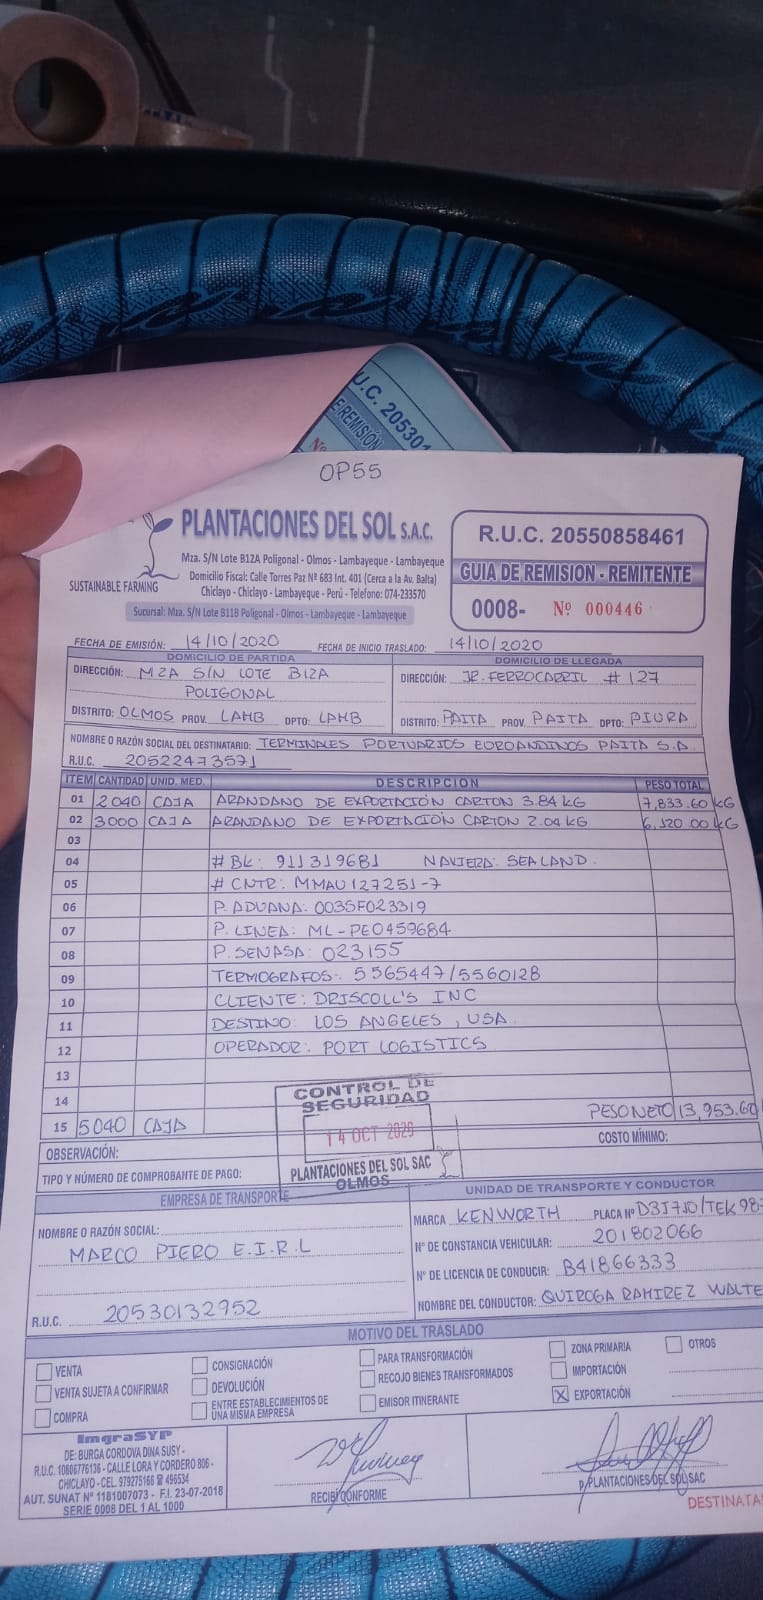 U.C. 205301
E REMISIÓN
Nº
OP55
PLANTACIONES DEL SOL S.A.C.
Mza. S/N Lote B12A Poligonal - Olmos - Lambayeque - Lambayeque
Domicilio Fiscal: Calle Torres Paz Nº 683 Int. 401 (Cerca a la Av. Balta)
Chiclayo - Chiclayo - Lambayeque - Perú - Telefono: 074-233570
SUSTAINABLE FARMING
Sucursal: Mza. S/N Lote B11B Poligonal - Olmos - Lambayeque - Lambayeque
R.U.C. 20550858461
GUIA DE REMISION - REMITENTE
0008- Nº 000446
FECHA DE EMISIÓN: 14/10/2020 FECHA DE INICIO TRASLADO: 14/10/2020
DOMICILIO DE PARTIDA DOMICILIO DE LLEGADA
DIRECCIÓN: MZA S/N LOTE B12A
POLIGONAL
DIRECCIÓN: JR. FERROCARRIL # 127
DISTRITO: OLMOS PROV. LAMB DPTO: LAMB
DISTRITO: PAITA PROV PAITA DPTO: PIURA
NOMBRE O RAZÓN SOCIAL DEL DESTINATARIO: TERMINALES PORTUARIOS EUROANDINOS PAITA S.A
R.U.C. 20522473571
ITEM CANTIDAD UNID. MED. DESCRIPCION PESO TOTAL
01 2040 CAJA ARANDANO DE EXPORTACIÓN CARTON 3.84 KG 7,833.60 KG
02 3000 CAJA ARANDANO DE EXPORTACIÓN CARTON 2.04 KG 6,120.00 KG
03
04 # BK: 911319681 NAVIERA: SEALAND.
05 # CNTR: MMAU 127251-7
06 P. ADUANA: 003SF023319
07 P. LINEA: ML-PE0459684
08 P. SENASA: 023155
09 TERMOGRAFOS: 5565447/5560128
10 CLIENTE: DRISCOLL'S INC
11 DESTINO: LOS ANGELES, USA.
12 OPERADOR: PORT LOGISTICS
13
14
15 5040 CAJA PESO NETO 13,953.60
CONTROL DE
SEGURIDAD
14 OCT 2020
PLANTACIONES DEL SOL SAC
OLMOS
OBSERVACIÓN: COSTO MÍNIMO:
TIPO Y NÚMERO DE COMPROBANTE DE PAGO:
EMPRESA DE TRANSPORTE
NOMBRE O RAZÓN SOCIAL:
MARCO PIERO E.I.R.L
R.U.C. 20530132952
UNIDAD DE TRANSPORTE Y CONDUCTOR
MARCA KENWORTH PLACA Nº D3I7J0/TEK98
Nº DE CONSTANCIA VEHICULAR: 201802066
Nº DE LICENCIA DE CONDUCIR: B41866333
NOMBRE DEL CONDUCTOR: QUIROGA RAMIREZ WALTE
MOTIVO DEL TRASLADO
VENTA CONSIGNACIÓN PARA TRANSFORMACIÓN ZONA PRIMARIA OTROS
VENTA SUJETA A CONFIRMAR DEVOLUCIÓN RECOJO BIENES TRANSFORMADOS IMPORTACIÓN
COMPRA ENTRE ESTABLECIMIENTOS DE UNA MISMA EMPRESA EMISOR ITINERANTE X EXPORTACIÓN
ImgraSYP
DE: BURGA CORDOVA DINA SUSY -
R.U.C. 10806776136 - CALLE LORA Y CORDERO 806 -
CHICLAYO - CEL. 979275166 ☎ 496534
AUT. SUNAT Nº 1181007073 - F.I. 23-07-2018
SERIE 0008 DEL 1 AL 1000
RECIBI CONFORME
p. PLANTACIONES DEL SOL SAC
DESTINATA